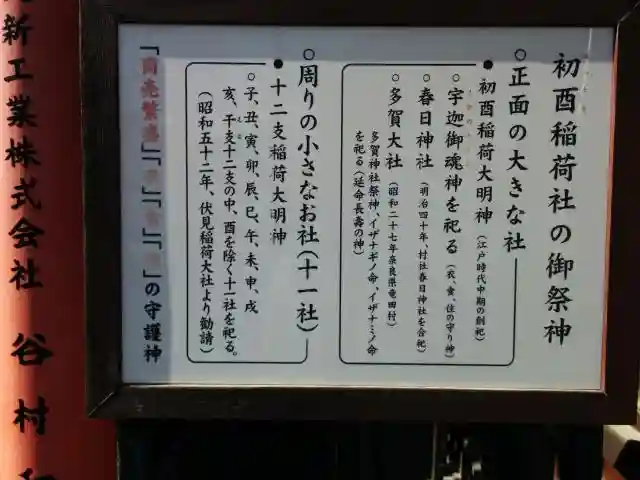 初酉稲荷社の御祭神
○正面の大きな社
●初酉稲荷大明神(江戸時代中期の創祀)
○宇迦御魂神を祀る(衣、食、住の守り神)
○春日神社(明治四十年、村社春日神社を合祀)
○多賀大社(昭和二十七年奈良県竜田村)
多賀神社祭神、イザナギノ命、イザナミノ命
を祀る(延命長壽の神)
○周りの小さなお社(十一社)
●十二支稲荷大明神
○子、丑、寅、卯、辰、巳、午、未、申、戌
亥、干支十二支の中、酉を除く十一社を祀る。
(昭和五十二年、伏見稲荷大社より勧請)
「商売繁盛」「
」「
」「
」の守護神
新工業株式会社 谷村